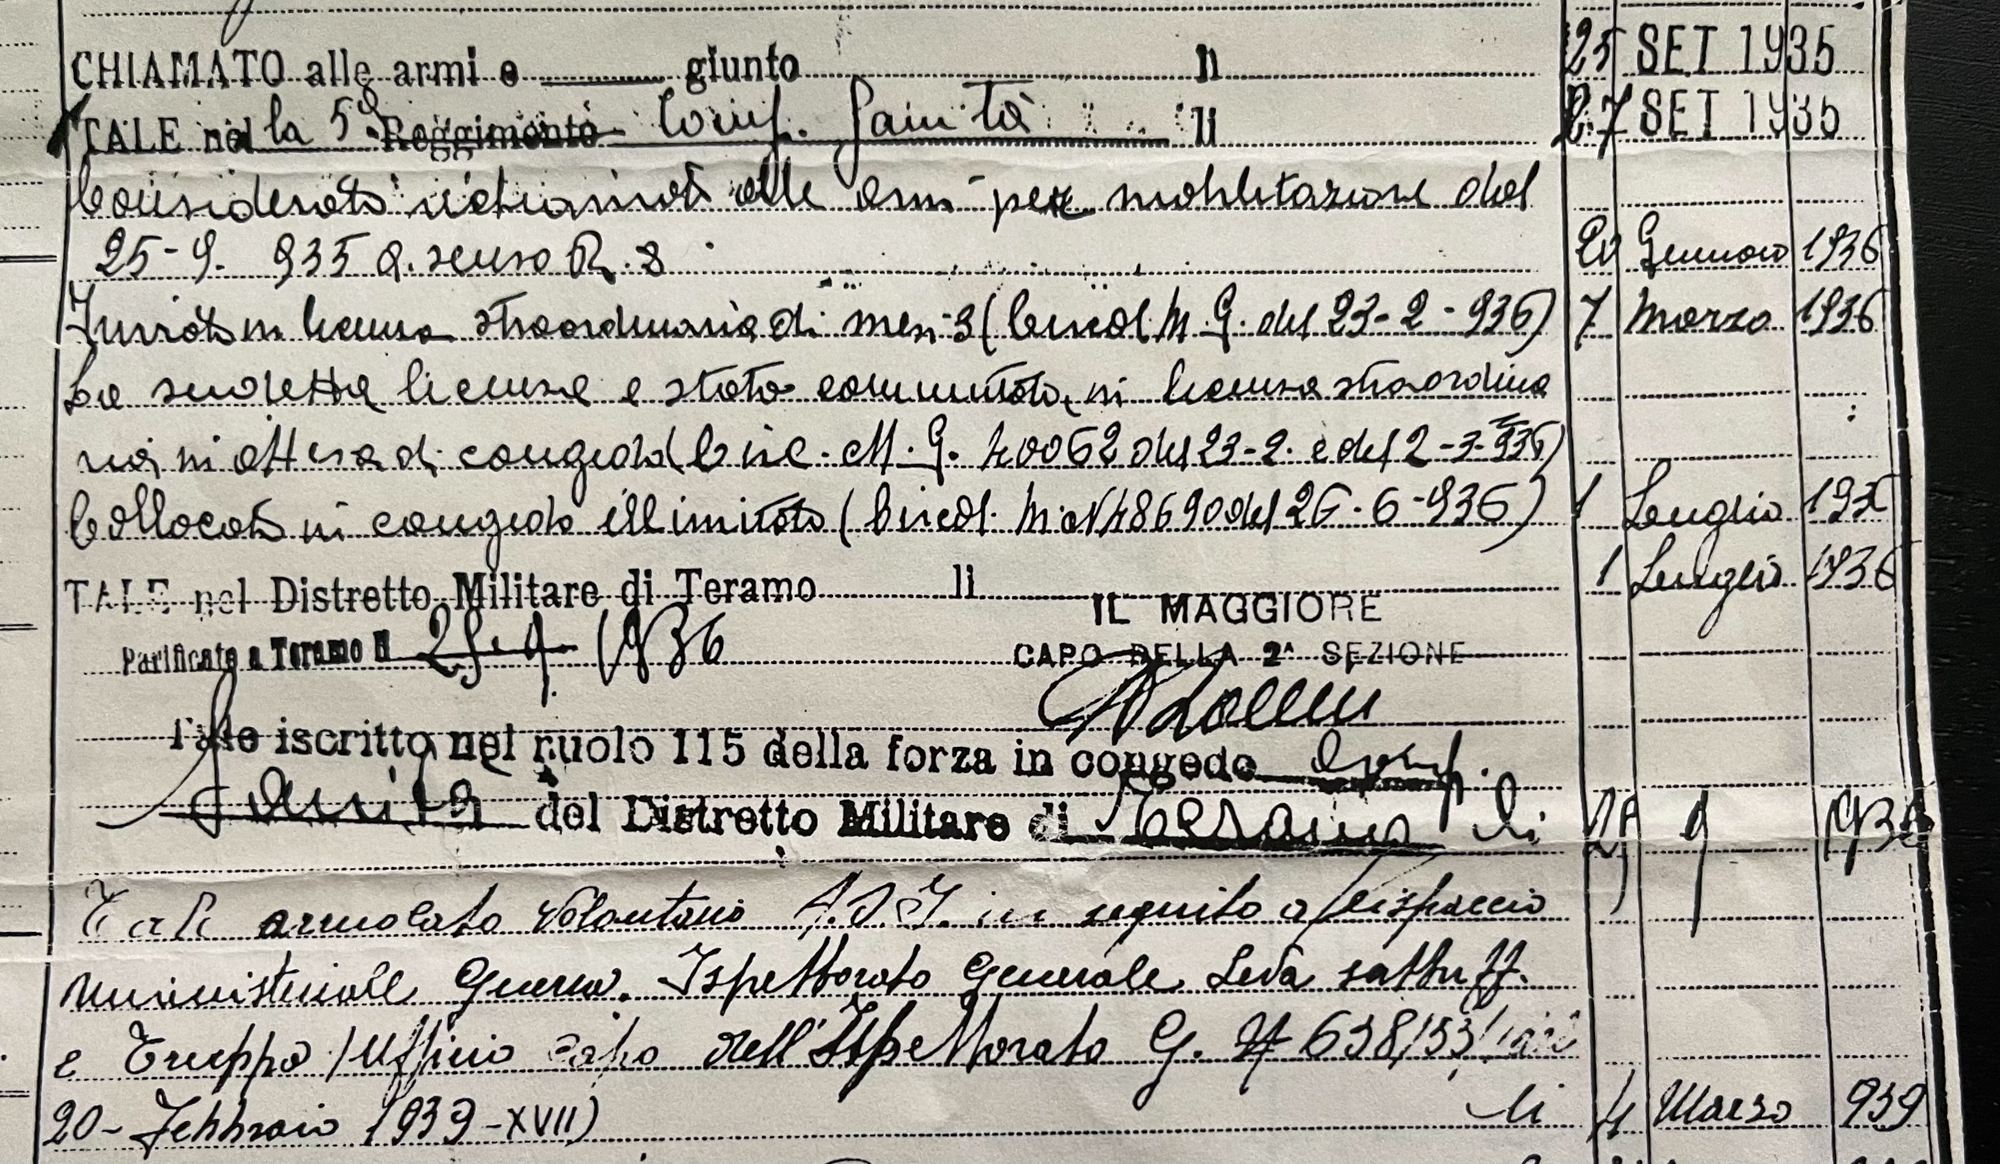 CHIAMATO alle armi e giunto lì 25 SET 1935
TALE nel la 5ª Reggimento Comp. Sanità lì 27 SET 1935
Considerato richiamato alle armi per mobilitazione dal
25-9. 935 a. senso R. 8 20 Gennaio 1936
Inviato in licenza straordinaria di mesi 3 (Circol. M. G. del 23-2-936) 7 Marzo 1936
La sudetta licenza e stata commutata in licenza straordina
ria in attesa di congedo (Circ. M. G. 40062 del 23-2. e del 2-3-936)
Collocato in congedo illimitato (Circol. 48690 del 26-6-936) 1 Luglio 1936
TALE nel Distretto Militare di Teramo lì 1 Luglio 1936
Parificato a Teramo lì 29-9-1936
IL MAGGIORE
CAPO DELLA 2ª SEZIONE
Tale iscritto nel ruolo 115 della forza in congedo Comp.
Sanità del Distretto Militare di Teramo li 29 9 1936
Tale arruolato volontario in seguito a dispaccio
ministeriale Guerra. Ispettorato Generale Leva sottuff.
e Truppa /Ufficio capo dell'Ispettorato G. N 638/53/
20- Febbraio 1939-XVII) li 4 Marzo 939